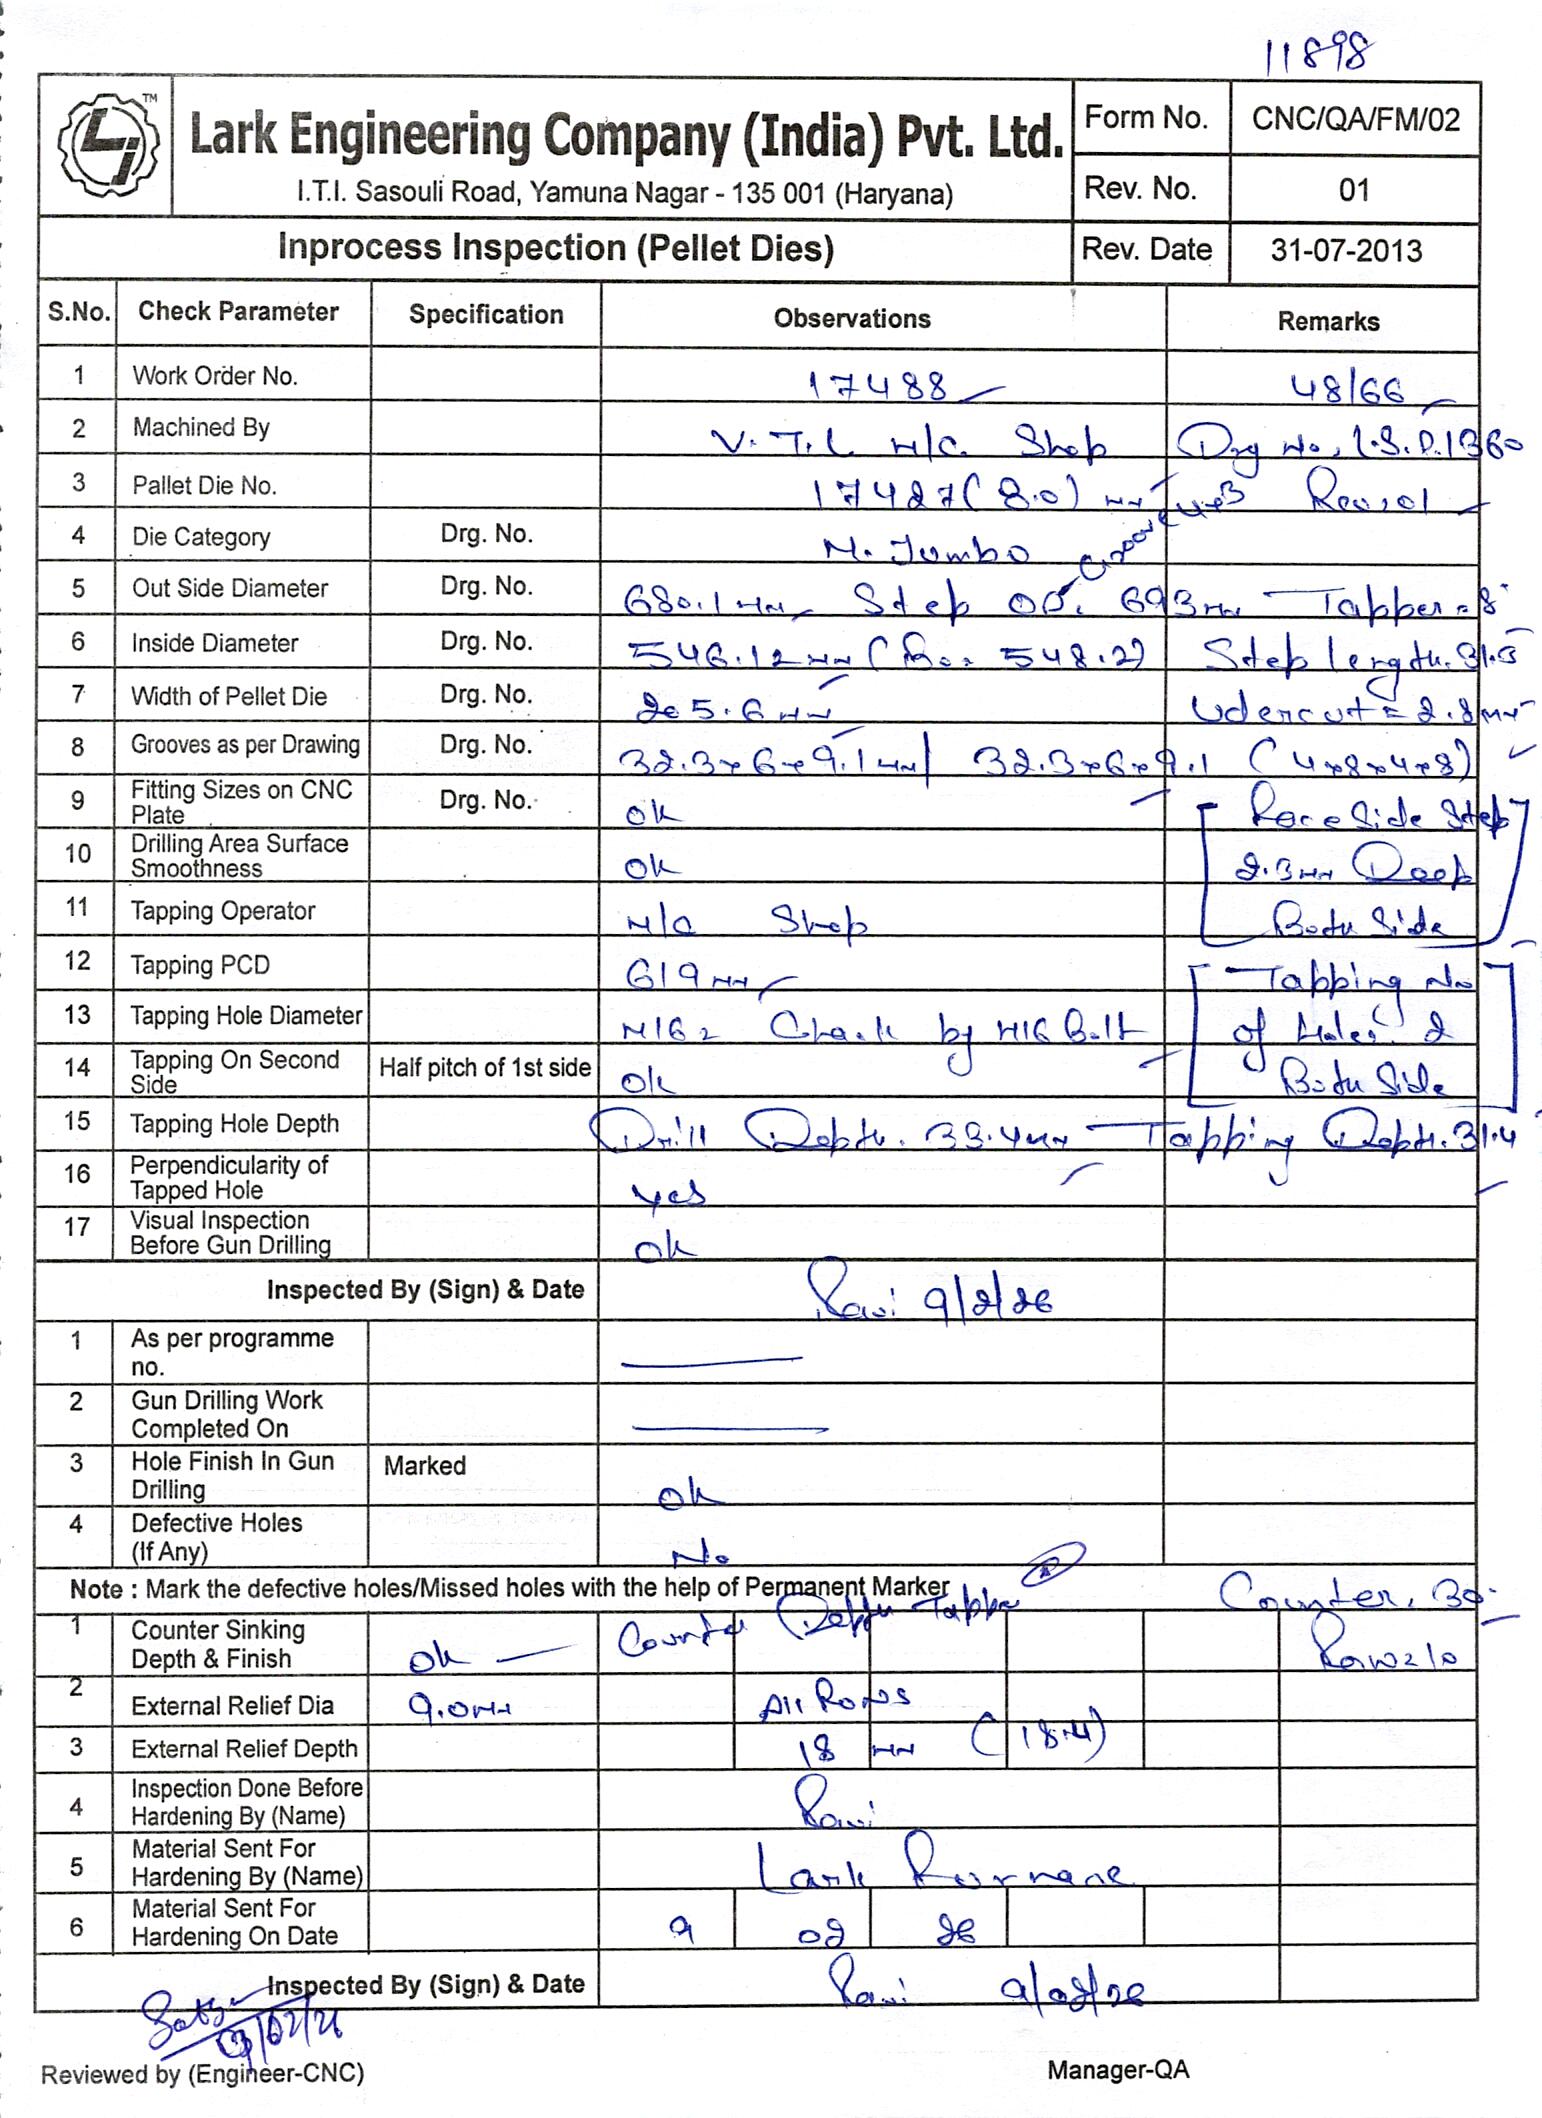 11898
TM
Lark Engineering Company (India) Pvt. Ltd.
I.T.I. Sasouli Road, Yamuna Nagar - 135 001 (Haryana)
Form No. CNC/QA/FM/02
Rev. No. 01
Inprocess Inspection (Pellet Dies) Rev. Date 31-07-2013
S.No. Check Parameter Specification Observations Remarks
1 Work Order No. 17488 48/66
2 Machined By V.T.L M/C Shop Drg No. L.S.D.1360
3 Pallet Die No. 17427 (8.0) mm Rev.01
Groove 4x3
4 Die Category Drg. No. M. Jumbo
5 Out Side Diameter Drg. No. 680.1 mm Step OD. 693 mm Tapper = 8°
6 Inside Diameter Drg. No. 546.12 mm ( 548.2) Step length. 31.3
7 Width of Pellet Die Drg. No. 205.6 mm Udercut = 2.8 mm
8 Grooves as per Drawing Drg. No. 32.3x6x9.1 mm | 32.3x6x9.1 (4x8x4x8)
9 Fitting Sizes on CNC Plate Drg. No. ok Face Side Step
10 Drilling Area Surface Smoothness ok 2.3 mm Deep
11 Tapping Operator M/C Shop Both Side
12 Tapping PCD 619 mm Tapping No
13 Tapping Hole Diameter M16 = Check by M16 Bolt of Holes. 2
14 Tapping On Second Side Half pitch of 1st side ok Both Side
15 Tapping Hole Depth Drill Depth. 33.4 mm Tapping Depth. 31.4
16 Perpendicularity of Tapped Hole yes
17 Visual Inspection Before Gun Drilling ok
Inspected By (Sign) & Date Ravi 9/2/26
1 As per programme no.
2 Gun Drilling Work Completed On
3 Hole Finish In Gun Drilling Marked ok
4 Defective Holes (If Any) No
Note : Mark the defective holes/Missed holes with the help of Permanent Marker Counter. 30°
1 Counter Sinking Depth & Finish ok Counter Depth Tapper
2 External Relief Dia 9.0 mm All Rows
3 External Relief Depth 18 mm (18.4)
4 Inspection Done Before Hardening By (Name) Ravi
5 Material Sent For Hardening By (Name) Lark Furnace
6 Material Sent For Hardening On Date 9 02 26
Inspected By (Sign) & Date Ravi 9/02/26
Reviewed by (Engineer-CNC) Manager-QA